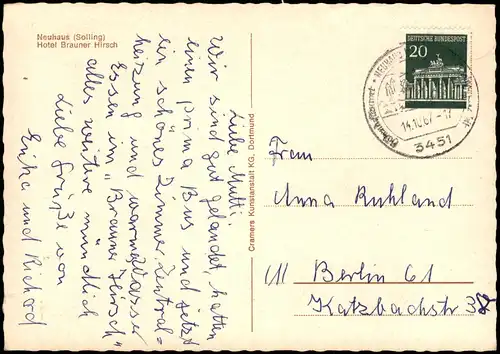 Neuhaus (Solling)
Hotel Brauner Hirsch
Liebe Mutti.
Wir sind gut gelandet, hatten
einen prima Bus und jetzt
ein schönes Zimmer, Zentral=
heizung und warmes Wasser
Essen im „Brauner Hirsch"
alles weitere mündlich
Liebe Grüße von
Erika und Richard
Cramers Kunstanstalt KG, Dortmund
DEUTSCHE BUNDESPOST
20
NEUHAUS
14.10.67-17
3451
Frau
Anna Ruhland
1 Berlin 61
Katzbachstr